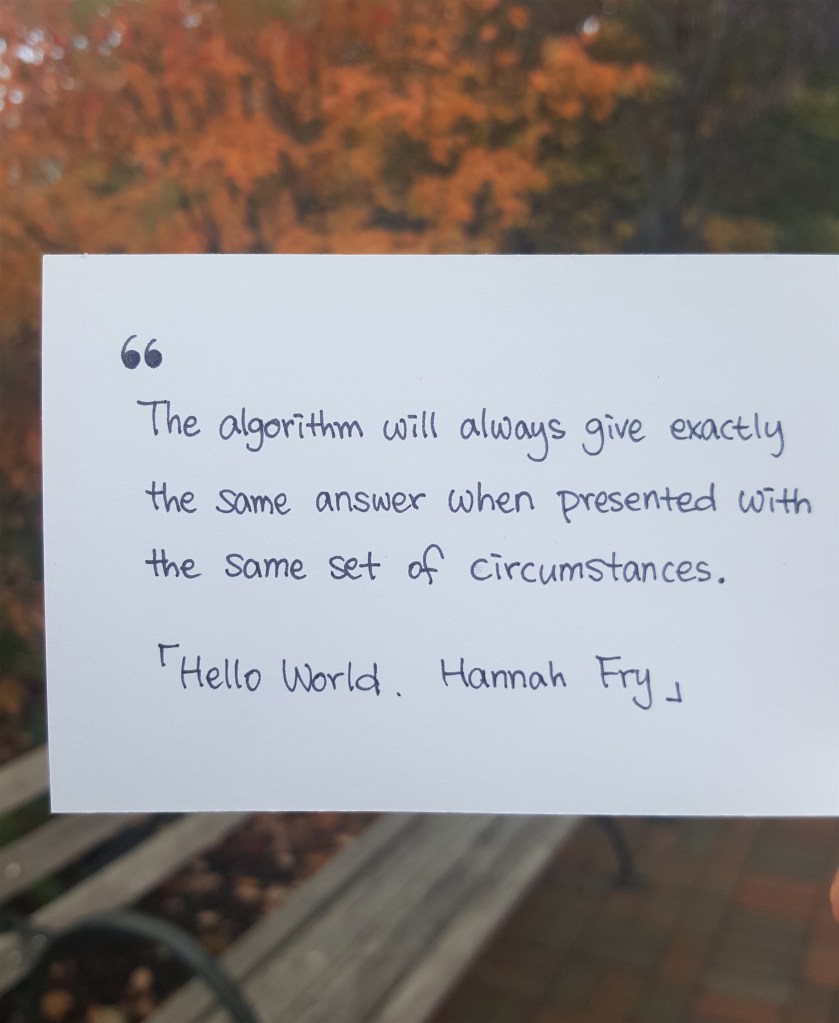 “
The algorithm will always give exactly
the same answer when presented with
the same set of circumstances.
「Hello World. Hannah Fry」